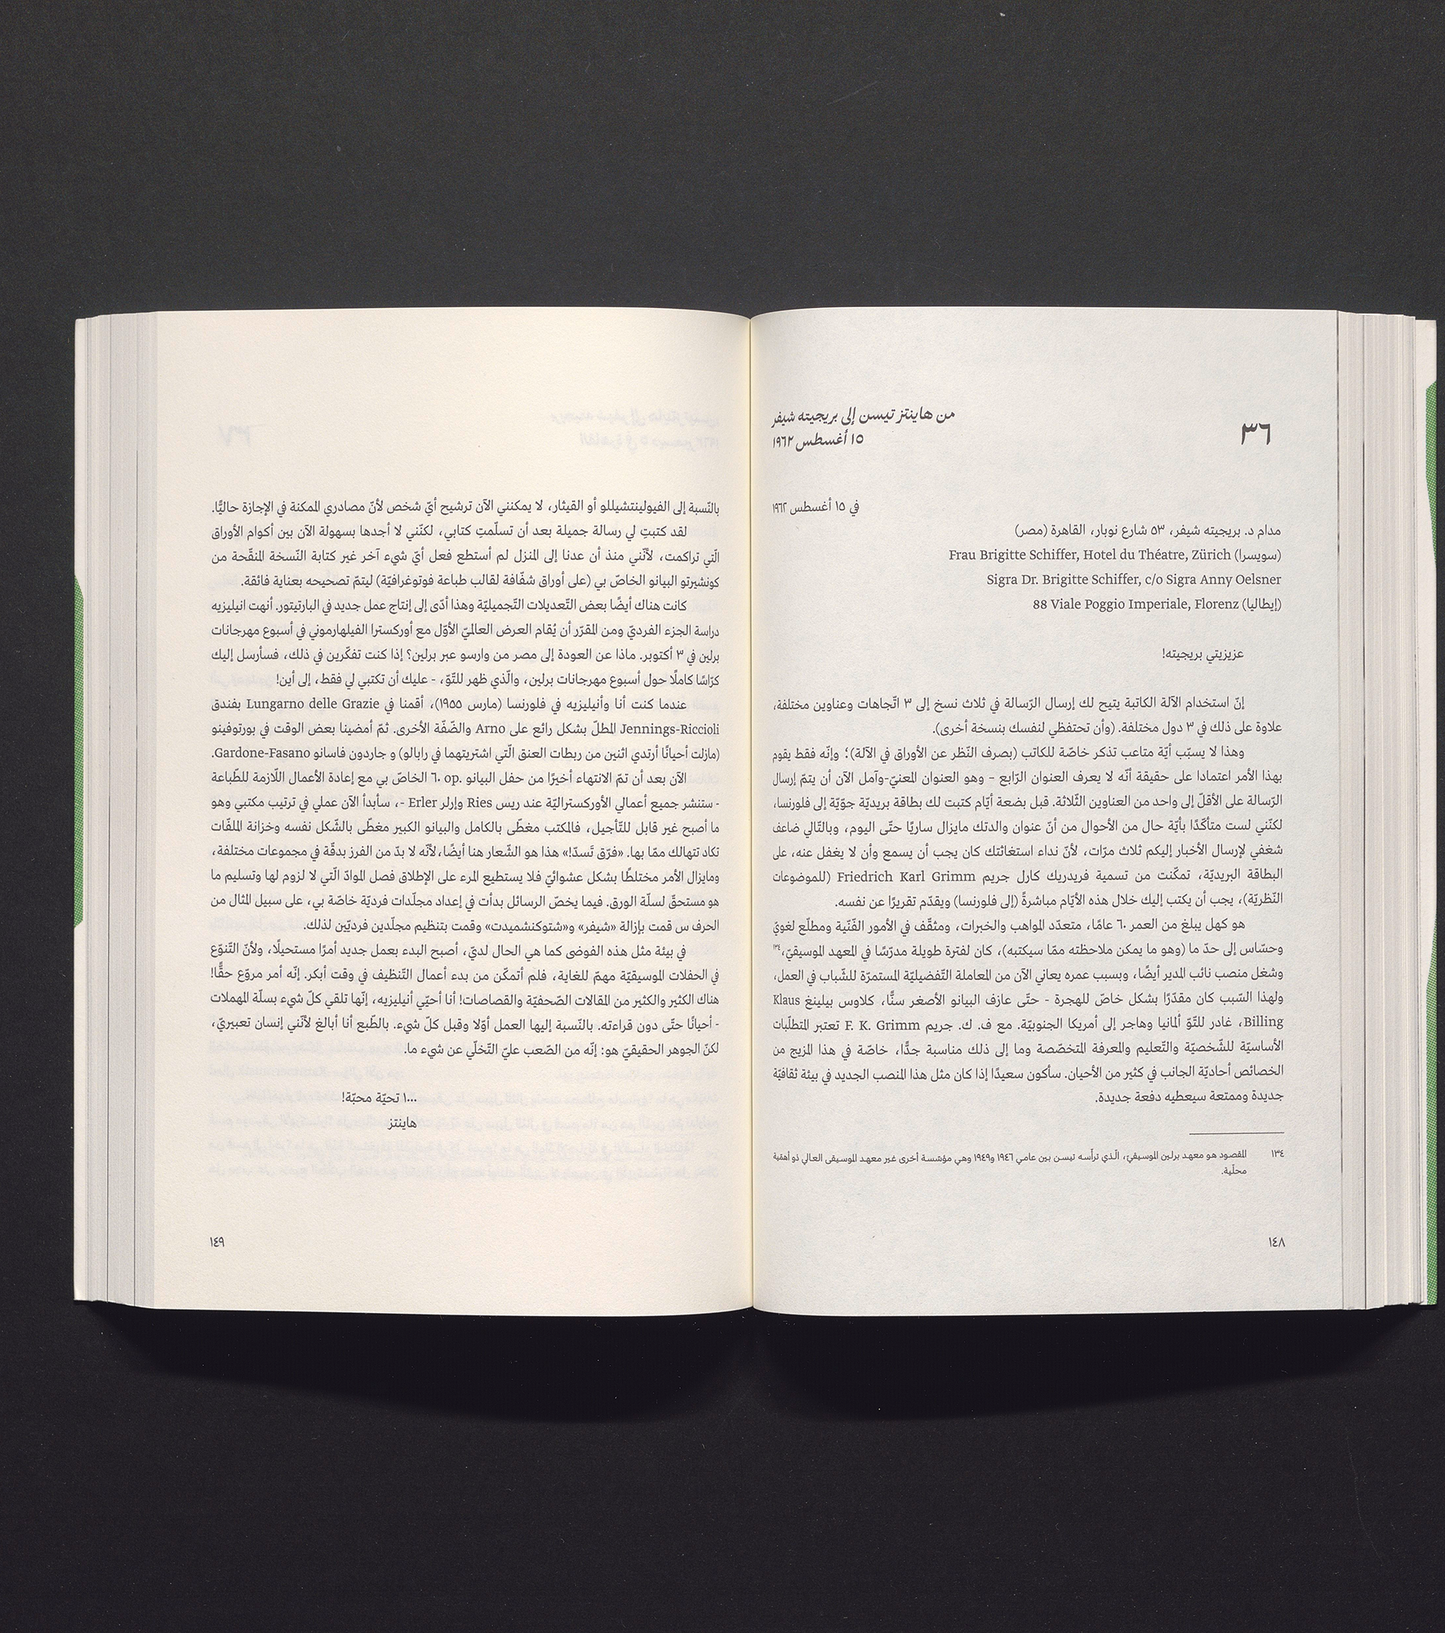 ٣٦
من هاينتز تيسن إلى بريجيته شيفر
١٥ أغسطس ١٩٦٢
في ١٥ أغسطس ١٩٦٢
مدام د. بريجيته شيفر، ٥٣ شارع نوبار، القاهرة (مصر)
Frau Brigitte Schiffer, Hotel du Théatre, Zürich (سويسرا)
Sigra Dr. Brigitte Schiffer, c/o Sigra Anny Oelsner
88 Viale Poggio Imperiale, Florenz (إيطاليا)
عزيزيتي بريجيته!
إنّ استخدام الآلة الكاتبة يتيح لك إرسال الرّسالة في ثلاث نسخ إلى ٣ اتّجاهات وعناوين مختلفة،
علاوة على ذلك في ٣ دول مختلفة. (وأن تحتفظي لنفسك بنسخة أخرى).
وهذا لا يسبّب أيّة متاعب تذكر خاصّة للكاتب (بصرف النّظر عن الأوراق في الآلة)؛ وإنّه فقط يقوم
بهذا الأمر اعتمادا على حقيقة أنّه لا يعرف العنوان الرّابع - وهو العنوان المعنيّ-وآمل الآن أن يتمّ إرسال
الرّسالة على الأقلّ إلى واحد من العناوين الثّلاثة. قبل بضعة أيّام كتبت لك بطاقة بريديّة جوّيّة إلى فلورنسا،
لكنّني لست متأكّدًا بأيّة حال من الأحوال من أنّ عنوان والدتك مايزال ساريًا حتّى اليوم، وبالتّالي ضاعف
شغفي لإرسال الأخبار إليكم ثلاث مرّات، لأنّ نداء استغاثتك كان يجب أن يسمع وأن لا يغفل عنه، على
البطاقة البريديّة، تمكّنت من تسمية فريدريك كارل جريم Friedrich Karl Grimm (للموضوعات
النّظريّة)، يجب أن يكتب إليك خلال هذه الأيّام مباشرةً (إلى فلورنسا) ويقدّم تقريرًا عن نفسه.
هو كهل يبلغ من العمر ٦٠ عامًا، متعدّد المواهب والخبرات، ومثقّف في الأمور الفّنّية ومطلّع لغويّ
وحسّاس إلى حدّ ما (وهو ما يمكن ملاحظته ممّا سيكتبه)، كان لفترة طويلة مدرّسًا في المعهد الموسيقيّ،١٣٤
وشغل منصب نائب المدير أيضًا، وبسبب عمره يعاني الآن من المعاملة التّفضيليّة المستمرّة للشّباب في العمل،
ولهذا السّبب كان مقدّرًا بشكل خاصّ للهجرة - حتّى عازف البيانو الأصغر سنًّا، كلاوس بيلينغ Klaus
Billing، غادر للتّوّ ألمانيا وهاجر إلى أمريكا الجنوبيّة. مع ف. ك. جريم F. K. Grimm تعتبر المتطلّبات
الأساسيّة للشّخصيّة والتّعليم والمعرفة المتخصّصة وما إلى ذلك مناسبة جدًّا، خاصّة في هذا المزيج من
الخصائص أحاديّة الجانب في كثير من الأحيان. سأكون سعيدًا إذا كان مثل هذا المنصب الجديد في بيئة ثقافيّة
جديدة وممتعة سيعطيه دفعة جديدة.
١٣٤ المقصود هو معهد برلين الموسيقيّ، الّذي ترأّسه تيسن بين عامي ١٩٤٦ و١٩٤٩ وهي مؤسّسة أخرى غير معهد الموسيقى العالي ذو أهمّية
محلّية.
١٤٨
بالنّسبة إلى الفيولينتشيللو أو القيثار، لا يمكنني الآن ترشيح أيّ شخص لأنّ مصادري الممكنة في الإجازة حاليًّا.
لقد كتبتِ لي رسالة جميلة بعد أن تسلّمتِ كتابي، لكنّني لا أجدها بسهولة الآن بين أكوام الأوراق
الّتي تراكمت، لأنّني منذ أن عدنا إلى المنزل لم أستطع فعل أيّ شيء آخر غير كتابة النّسخة المنقّحة من
كونشيرتو البيانو الخاصّ بي (على أوراق شفّافة لقالب طباعة فوتوغرافيّة) ليتمّ تصحيحه بعناية فائقة.
كانت هناك أيضًا بعض التّعديلات التّجميليّة وهذا أدّى إلى إنتاج عمل جديد في البارتيتور. أنهت انيليزيه
دراسة الجزء الفرديّ ومن المقرّر أن يُقام العرض العالميّ الأوّل مع أوركسترا الفيلهارموني في أسبوع مهرجانات
برلين في ٣ أكتوبر. ماذا عن العودة إلى مصر من وارسو عبر برلين؟ إذا كنت تفكّرين في ذلك، فسأرسل إليك
كرّاسًا كاملًا حول أسبوع مهرجانات برلين، والّذي ظهر للتّوّ، - عليك أن تكتبي لي فقط، إلى أين!
عندما كنت أنا وأنيليزيه في فلورنسا (مارس ١٩٥٥)، أقمنا في Lungarno delle Grazie بفندق
Jennings-Riccioli المطلّ بشكل رائع على Arno والضّفّة الأخرى. ثمّ أمضينا بعض الوقت في بورتوفينو
(مازلت أحيانًا أرتدي اثنين من ربطات العنق الّتي اشتريتهما في رابالو) و جاردون فاسانو Gardone-Fasano.
الآن بعد أن تمّ الانتهاء أخيرًا من حفل البيانو .op ٦٠ الخاصّ بي مع إعادة الأعمال اللّازمة للطّباعة
- ستنشر جميع أعمالي الأوركستراليّة عند ريس Ries وإرلر Erler -، سأبدأ الآن عملي في ترتيب مكتبي وهو
ما أصبح غير قابل للتّأجيل، فالمكتب مغطّى بالكامل والبيانو الكبير مغطّى بالشّكل نفسه وخزانة الملفّات
تكاد تتهالك ممّا بها. «فرّق تَسد!» هذا هو الشّعار هنا أيضًا،لأنّه لا بدّ من الفرز بدقّة في مجموعات مختلفة،
ومايزال الأمر مختلطًا بشكل عشوائيّ فلا يستطيع المرء على الإطلاق فصل الموادّ الّتي لا لزوم لها وتسليم ما
هو مستحقّ لسلّة الورق. فيما يخصّ الرسائل بدأت في إعداد مجلّدات فرديّة خاصّة بي، على سبيل المثال من
الحرف س قمت بإزالة «شيفر» و«شتوكنشميدت» وقمت بتنظيم مجلّدين فرديّين لذلك.
في بيئة مثل هذه الفوضى كما هي الحال لديّ، أصبح البدء بعمل جديد أمرًا مستحيلًا، ولأنّ التّنوّع
في الحفلات الموسيقيّة مهمّ للغاية، فلم أتمكّن من بدء أعمال التّنظيف في وقت أبكر. إنّه أمر مروّع حقًّا!
هناك الكثير والكثير من المقالات الصّحفيّة والقصاصات! أنا أحيّي أنيليزيه، إنّها تلقي كلّ شيء بسلّة المهملات
- أحيانًا حتّى دون قراءته. بالنّسبة إليها العمل أوّلا وقبل كلّ شيء. بالطّبع أنا أبالغ لأنّني إنسان تعبيريّ،
لكنّ الجوهر الحقيقيّ هو: إنّه من الصّعب عليّ التّخلّي عن شيء ما.
١٠٠٠ تحيّة محبّة!
هاينتز
١٤٩